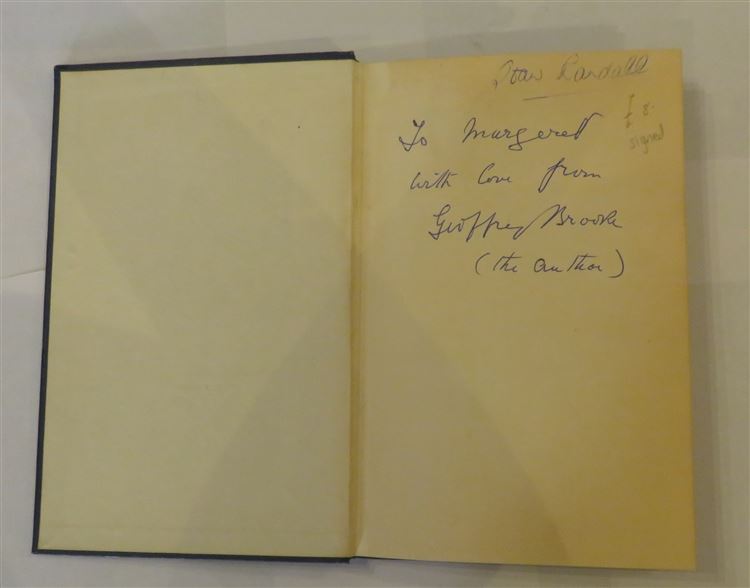 Randall
£8.
signed
To Margeret
with love from
Geoffrey Brooke
(the author)